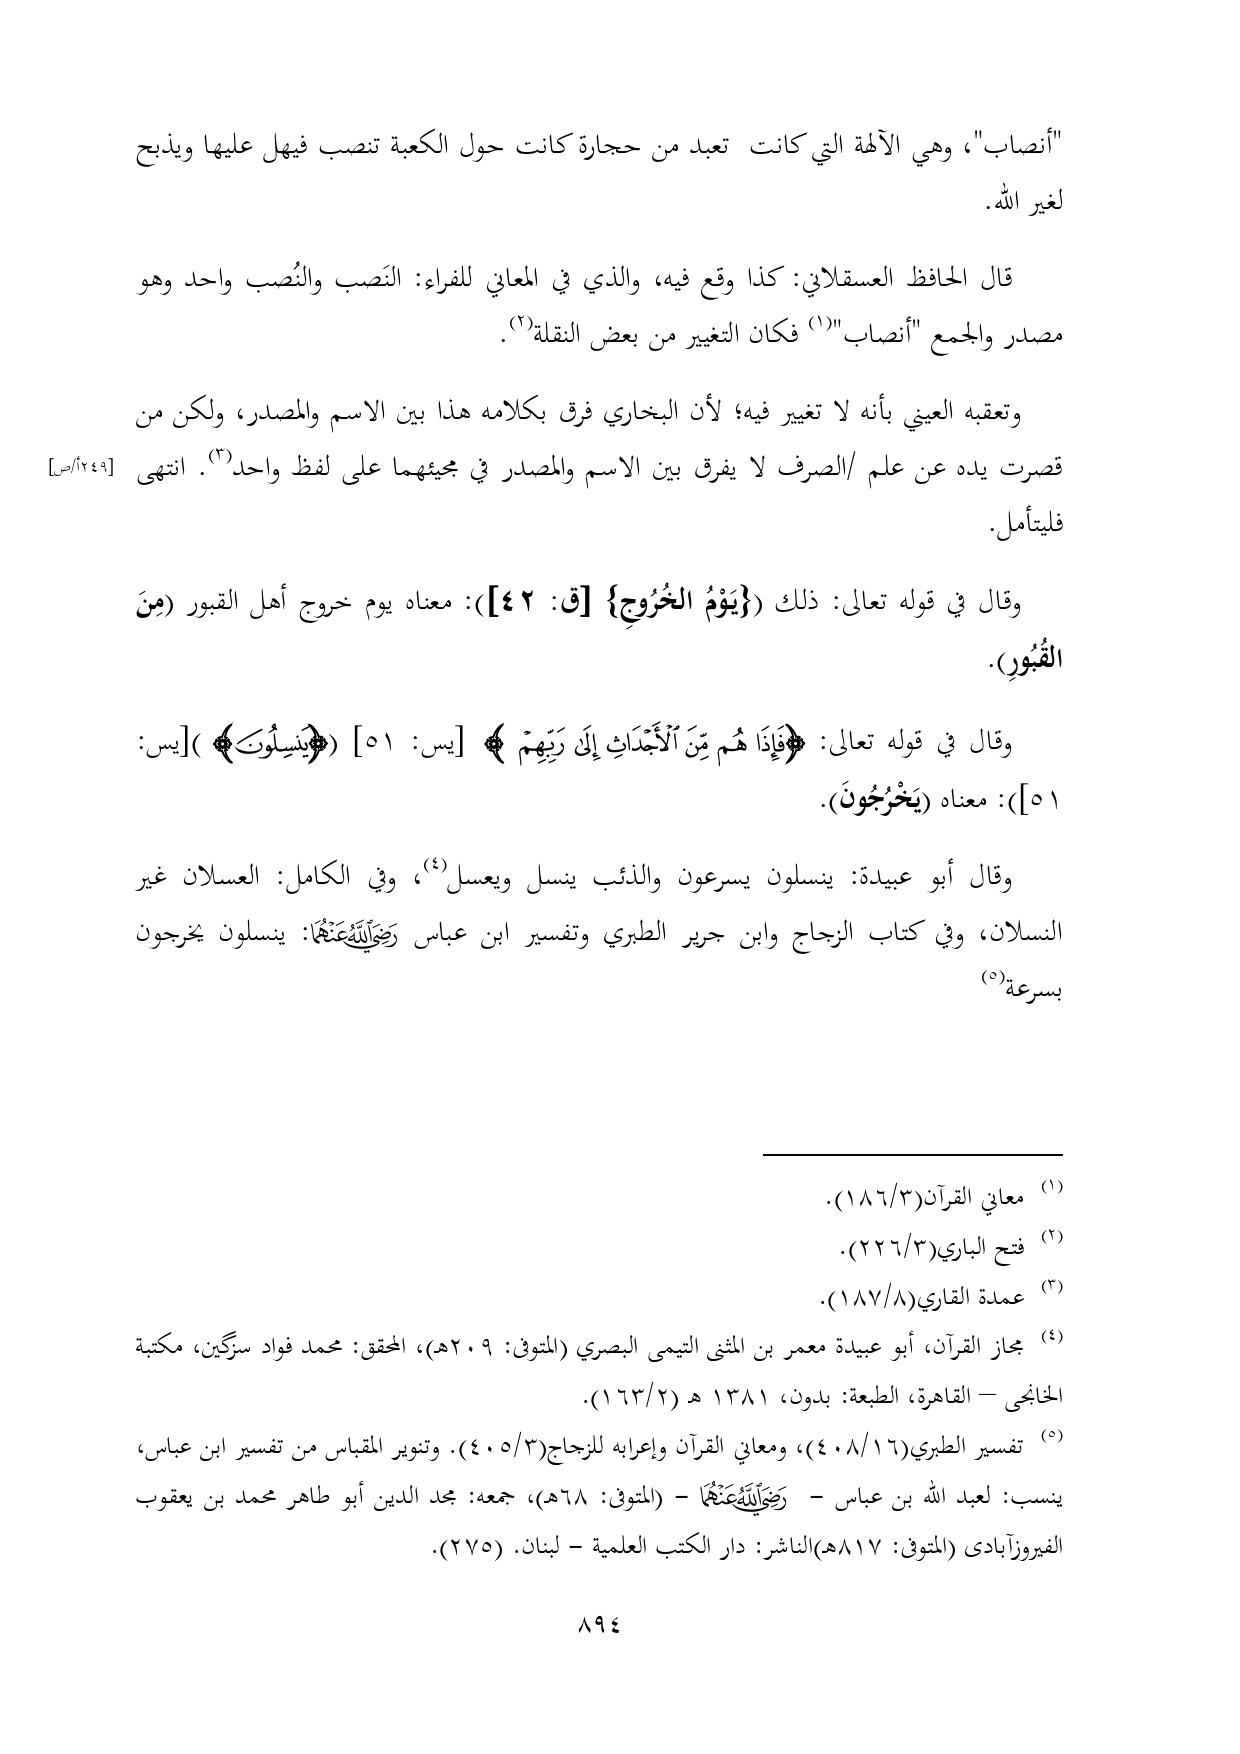 "أنصاب"، وهي الآلهة التي كانت تعبد من حجارة كانت حول الكعبة تنصب فيهل عليها ويذبح
لغير الله.
قال الحافظ العسقلاني: كذا وقع فيه، والذي في المعاني للفراء: النَصب والنُصب واحد وهو
مصدر والجمع "أنصاب"(١) فكان التغيير من بعض النقلة(٢).
وتعقبه العيني بأنه لا تغيير فيه؛ لأن البخاري فرق بكلامه هذا بين الاسم والمصدر، ولكن من
قصرت يده عن علم /الصرف لا يفرق بين الاسم والمصدر في مجيئهما على لفظ واحد(٣). انتهى [٢٤٩أ/ص]
فليتأمل.
وقال في قوله تعالى: ذلك ({يَوْمُ الخُرُوجِ} [ق: ٤٢]): معناه يوم خروج أهل القبور (مِنَ
القُبُورِ).
وقال في قوله تعالى: ﴿فَإِذَا هُم مِّنَ ٱلْأَجْدَاثِ إِلَىٰ رَبِّهِمْ ﴾ [يس: ٥١] (﴿يَنسِلُونَ﴾ )[يس:
٥١]): معناه (يَخْرُجُونَ).
وقال أبو عبيدة: ينسلون يسرعون والذئب ينسل ويعسل(٤)، وفي الكامل: العسلان غير
النسلان، وفي كتاب الزجاج وابن جرير الطبري وتفسير ابن عباس رَضِيَٱللَّهُعَنْهُمَا: ينسلون يخرجون
بسرعة(٥)
(١) معاني القرآن(١٨٦/٣).
(٢) فتح الباري(٢٢٦/٣).
(٣) عمدة القاري(١٨٧/٨).
(٤) مجاز القرآن، أبو عبيدة معمر بن المثنى التيمى البصري (المتوفى: ٢٠٩هـ)، المحقق: محمد فواد سزگين، مكتبة
الخانجى – القاهرة، الطبعة: بدون، ١٣٨١ هـ (١٦٣/٢).
(٥) تفسير الطبري(٤٠٨/١٦)، ومعاني القرآن وإعرابه للزجاج(٤٠٥/٣). وتنوير المقباس من تفسير ابن عباس،
ينسب: لعبد الله بن عباس - رَضِيَٱللَّهُعَنْهُمَا - (المتوفى: ٦٨هـ)، جمعه: مجد الدين أبو طاهر محمد بن يعقوب
الفيروزآبادى (المتوفى: ٨١٧هـ)الناشر: دار الكتب العلمية - لبنان. (٢٧٥).
٨٩٤